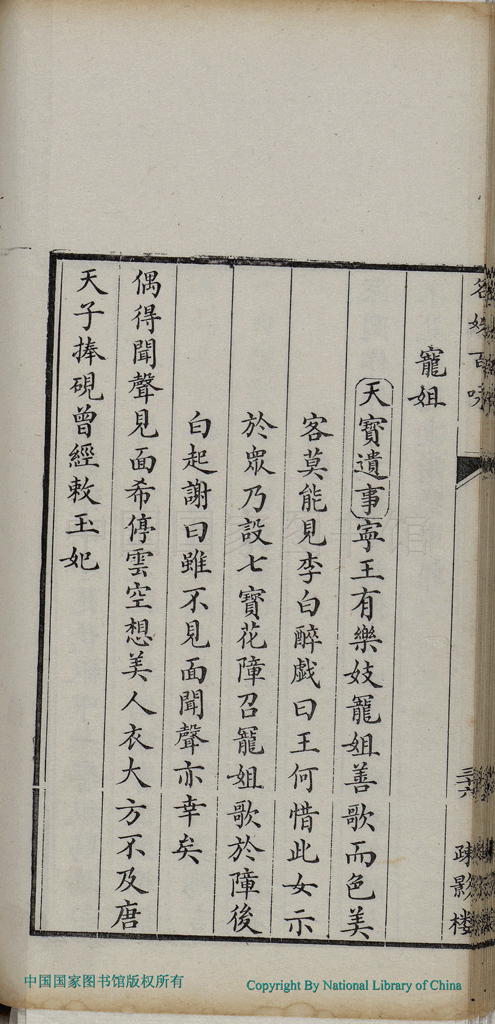 名妓百咏
三十六
疎影楼
寵姐
天寳遺事寧王有樂妓寵姐善歌而色美
客莫能見李白醉戲曰王何惜此女示
於眾乃設七寳花障召寵姐歌於障後
白起謝曰雖不見面聞聲亦幸矣
偶得聞聲見面希停雲空想美人衣大方不及唐
天子捧硯曾經敕玉妃
中国国家图书馆版权所有
Copyright By National Library of China